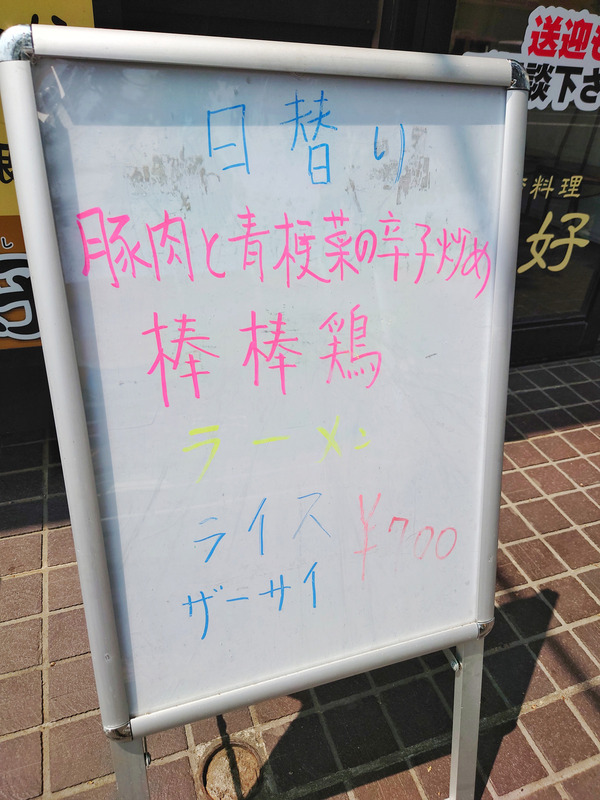 日替り
豚肉と青梗菜の辛子炒め
棒棒鶏
ラーメン
ライス
¥700
ザーサイ
送迎も
談下さ
料理
好
し